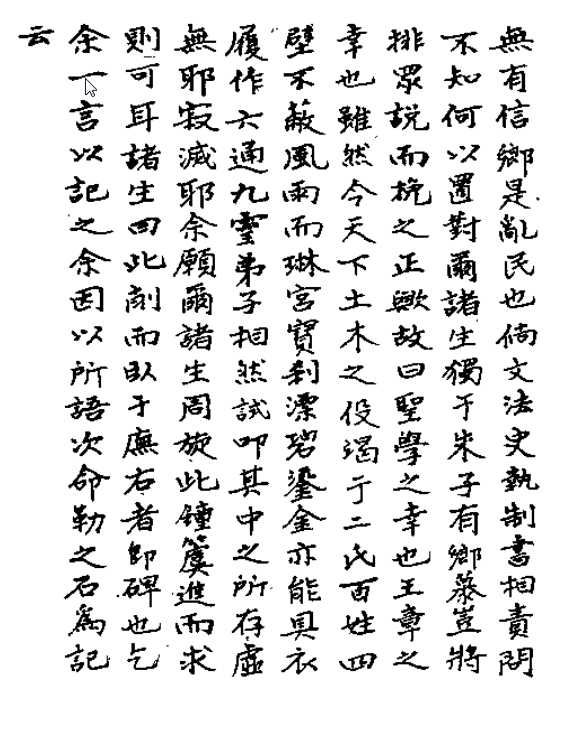 無有信鄉是亂民也倘文法史執制書相責問
不知何以置對爾諸生獨于朱子有鄉慕豈將
排眾說而旋之正歟故曰聖學之幸也王章之
幸也雖然今天下土木之役竭于二氏百姓四
壁不蔽風雨而琳宮寶剎漂碧鎏金亦能具衣
履作六通九靈弟子相然試叩其中之所存虛
無耶寂滅耶余願爾諸生周旋此鐘簴進而求
則可耳諸生曰此而臥于廡右者即碑也乞
余一言以記之余因以所語次命勒之石為記
云